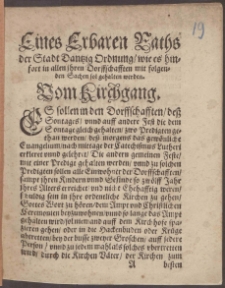 19
Eines Erbaren Raths
der Stadt Dantzig Ordnung/ wie es hin-
fort in allen ihren Dorffschafften mit folgen-
den Sachen sol gehalten werden.
Vom Kirchgang.
ES sollen in den Dorffschafften/ deß
Sontages/ vnnd auff andere Fest die dem
Sontage gleich gehalten/ zwo Predigten ge-
than werden/ deß morgens das gewönliche
Evangelium/ nach mittage der Catechismus Lutheri
erkleret vnnd gelehrt/ Die andern gemeinen Feste/
mit einer Predigt gehalten werden/ vnnd zu solchen
Predigten sollen alle Einwohner der Dorffschafften/
sampt ihren Kindern vnnd Gesinde so zwölff Jahr
ihres Alters erreichet vnd nicht Ehehafftig waren/
schuldig sein in ihre ordentliche Kirchen zu gehen/
Gottes Wort zu hören/ dem Ampt vnd Christlichen
Ceremonien beyzuwohnen/ vnnd so lange das Ampt
gehalten wird/ sol niemand auff dem Kirchhofe spa-
zieren gehen/ oder in die Hackenbuden oder Krüge
eintretten/ bey der busse zweyer Groschen/ auff iedere
Person/ vnnd zu iedem mahl als solches vbertretten
wird/ durch die Kirchen Väter/ der Kirchen zum
A besten